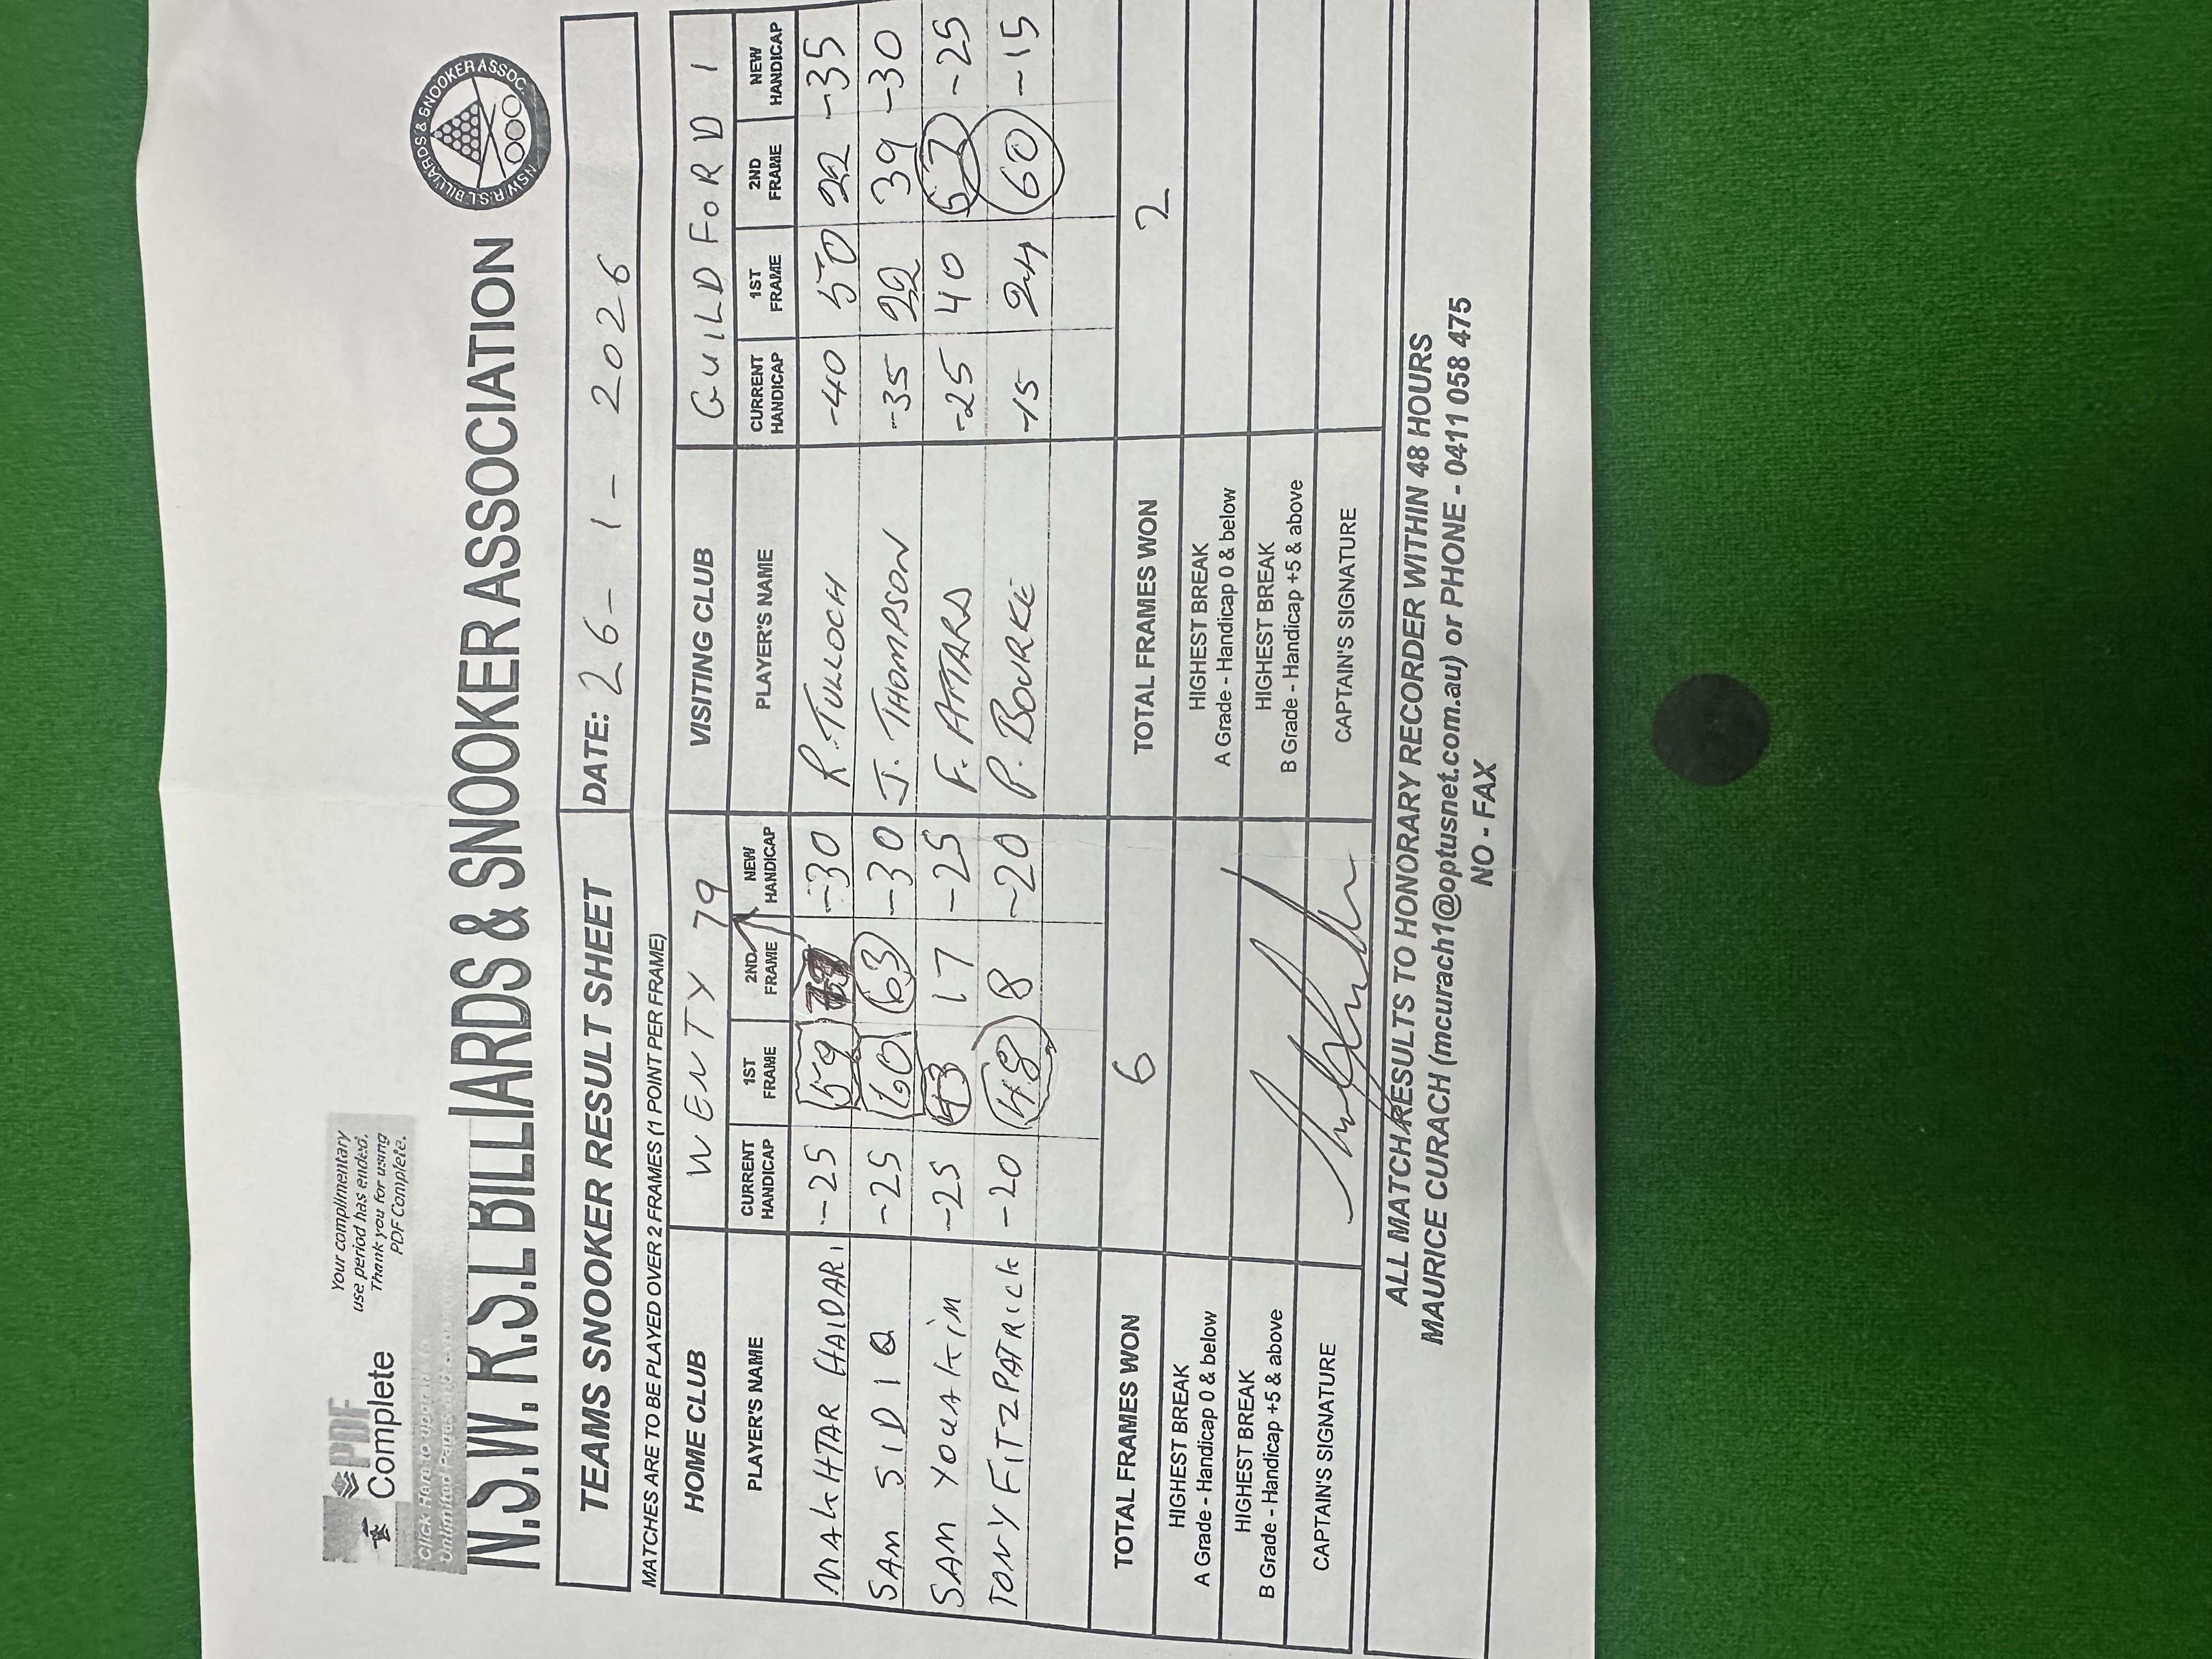 Your complimentary
use period has ended.
Thank you for using
PDF Complete.
PDF
Complete
Click Here to upgrade to
Unlimited Pages and
N.S.W. R.S.L BILLIARDS & SNOOKER ASSOCIATION
NSW R.S.L BILLIARDS & SNOOKER ASSOC.
TEAMS SNOOKER RESULT SHEET DATE: 26-1-2026
MATCHES ARE TO BE PLAYED OVER 2 FRAMES (1 POINT PER FRAME)
HOME CLUB WENTY 79 VISITING CLUB GUILDFORD 1
PLAYER'S NAME CURRENT HANDICAP 1ST FRAME 2ND FRAME NEW HANDICAP PLAYER'S NAME CURRENT HANDICAP 1ST FRAME 2ND FRAME NEW HANDICAP
MAKHTAR HAIDARI -25 59 -30 R. TULLOCH -40 50 22 -35
SAM SIDIQ -25 60 63 -30 J. THOMPSON -35 22 39 -30
SAM YOUAKIM -25 43 17 -25 F. ATTARD -25 40 57 -25
TONY FITZPATRICK -20 48 8 -20 P. BOURKE -15 24 60 -15
TOTAL FRAMES WON 6 TOTAL FRAMES WON 2
HIGHEST BREAK HIGHEST BREAK
A Grade - Handicap 0 & below A Grade - Handicap 0 & below
HIGHEST BREAK HIGHEST BREAK
B Grade - Handicap +5 & above B Grade - Handicap +5 & above
CAPTAIN'S SIGNATURE CAPTAIN'S SIGNATURE
ALL MATCH RESULTS TO HONORARY RECORDER WITHIN 48 HOURS
MAURICE CURACH (mcurach1@optusnet.com.au) or PHONE - 0411 058 475
NO - FAX